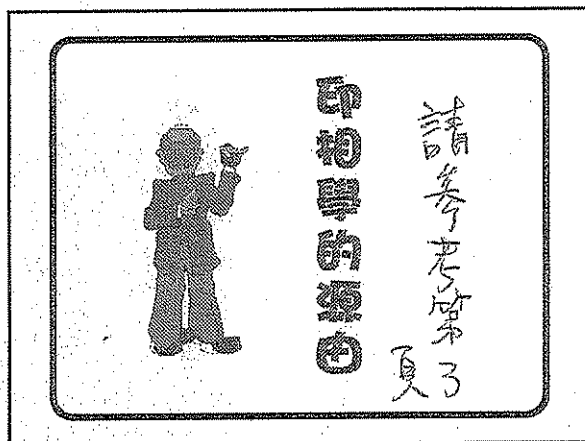 請參考第3
頁
印相學的源由